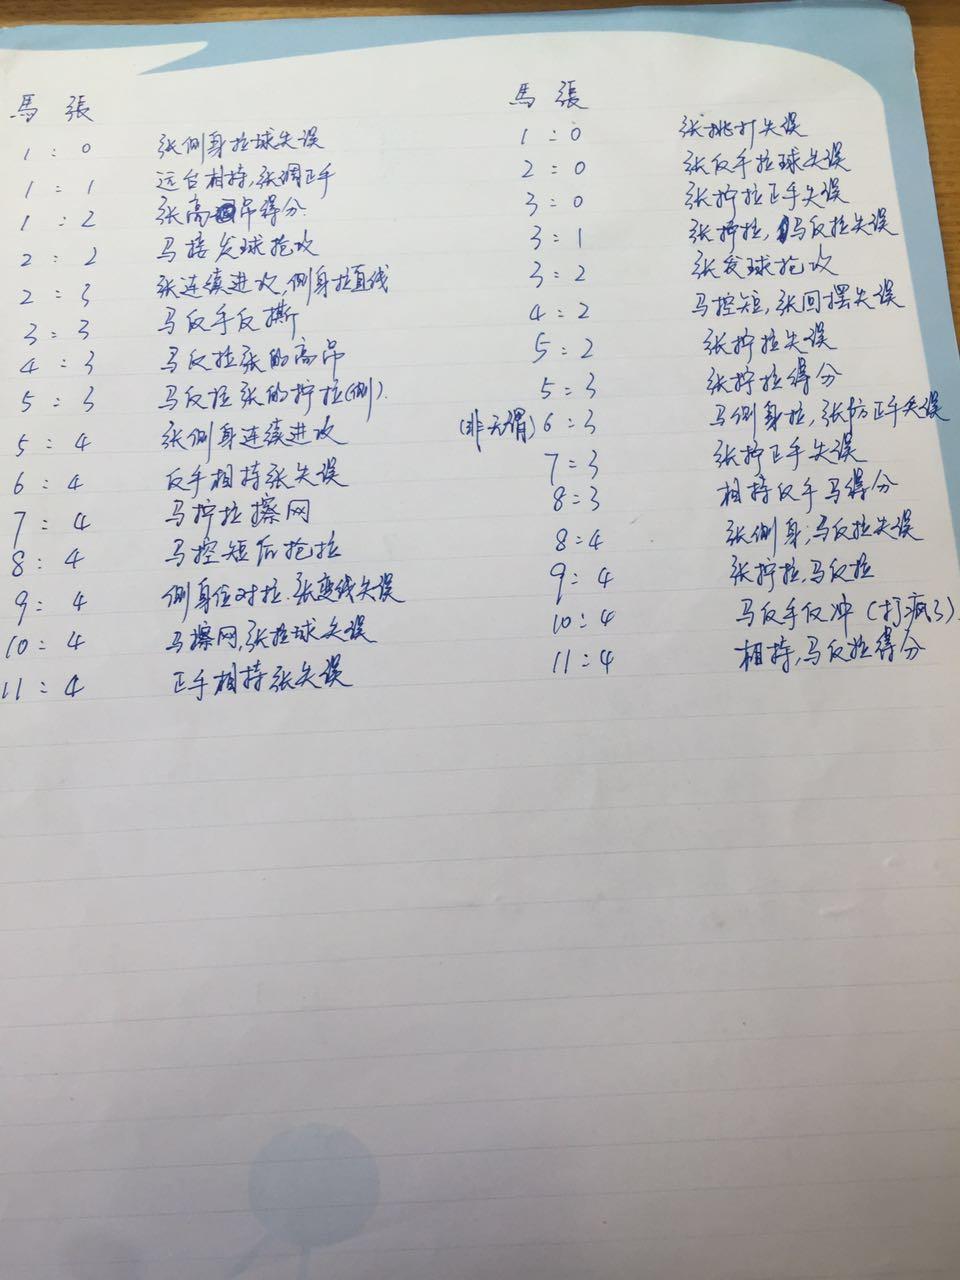 馬 張
1 : 0 张侧身拉球失误
1 : 1 远台相持,张调正手
1 : 2 张高吊得分
2 : 2 马接发球抢攻
2 : 3 张连续进攻,侧身拉直线
3 : 3 马反手反撕
4 : 3 马反拉张的高吊
5 : 3 马反拉张的拧拉(侧).
5 : 4 张侧身连续进攻
6 : 4 反手相持张失误
7 : 4 马拧拉擦网
8 : 4 马控短后抢拉
9 : 4 侧身位对拉.张变线失误
10 : 4 马擦网,张拉球失误
11 : 4 正手相持张失误
馬 張
1 : 0 张挑打失误
2 : 0 张反手拉球失误
3 : 0 张拧拉正手失误
3 : 1 张拧拉,马反拉失误
3 : 2 张发球抢攻
4 : 2 马控短,张回摆失误
5 : 2 张拧拉失误
5 : 3 张拧拉得分
(非无谓) 6 : 3 马侧身拉,张防正手失误
7 : 3 张拧正手失误
8 : 3 相持反手马得分
8 : 4 张侧身;马反拉失误
9 : 4 张拧拉,马反拉
10 : 4 马反手反冲(打疯了).
11 : 4 相持,马反拉得分